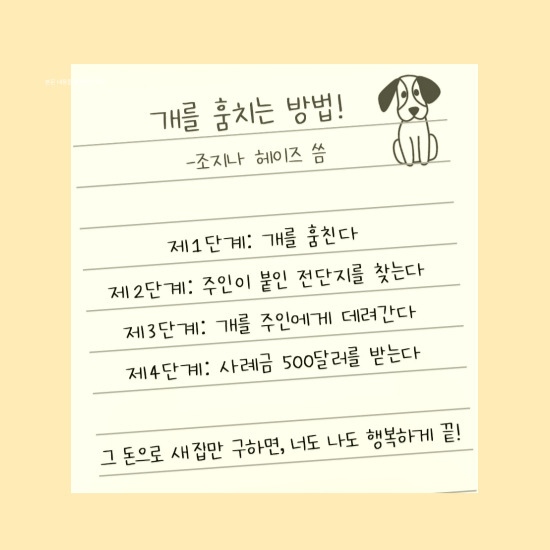 개를 훔치는 방법!
-조지나 헤이즈 씀
제1단계: 개를 훔친다
제2단계: 주인이 붙인 전단지를 찾는다
제3단계: 개를 주인에게 데려간다
제4단계: 사례금 500달러를 받는다
그 돈으로 새집만 구하면, 너도 나도 행복하게 끝!